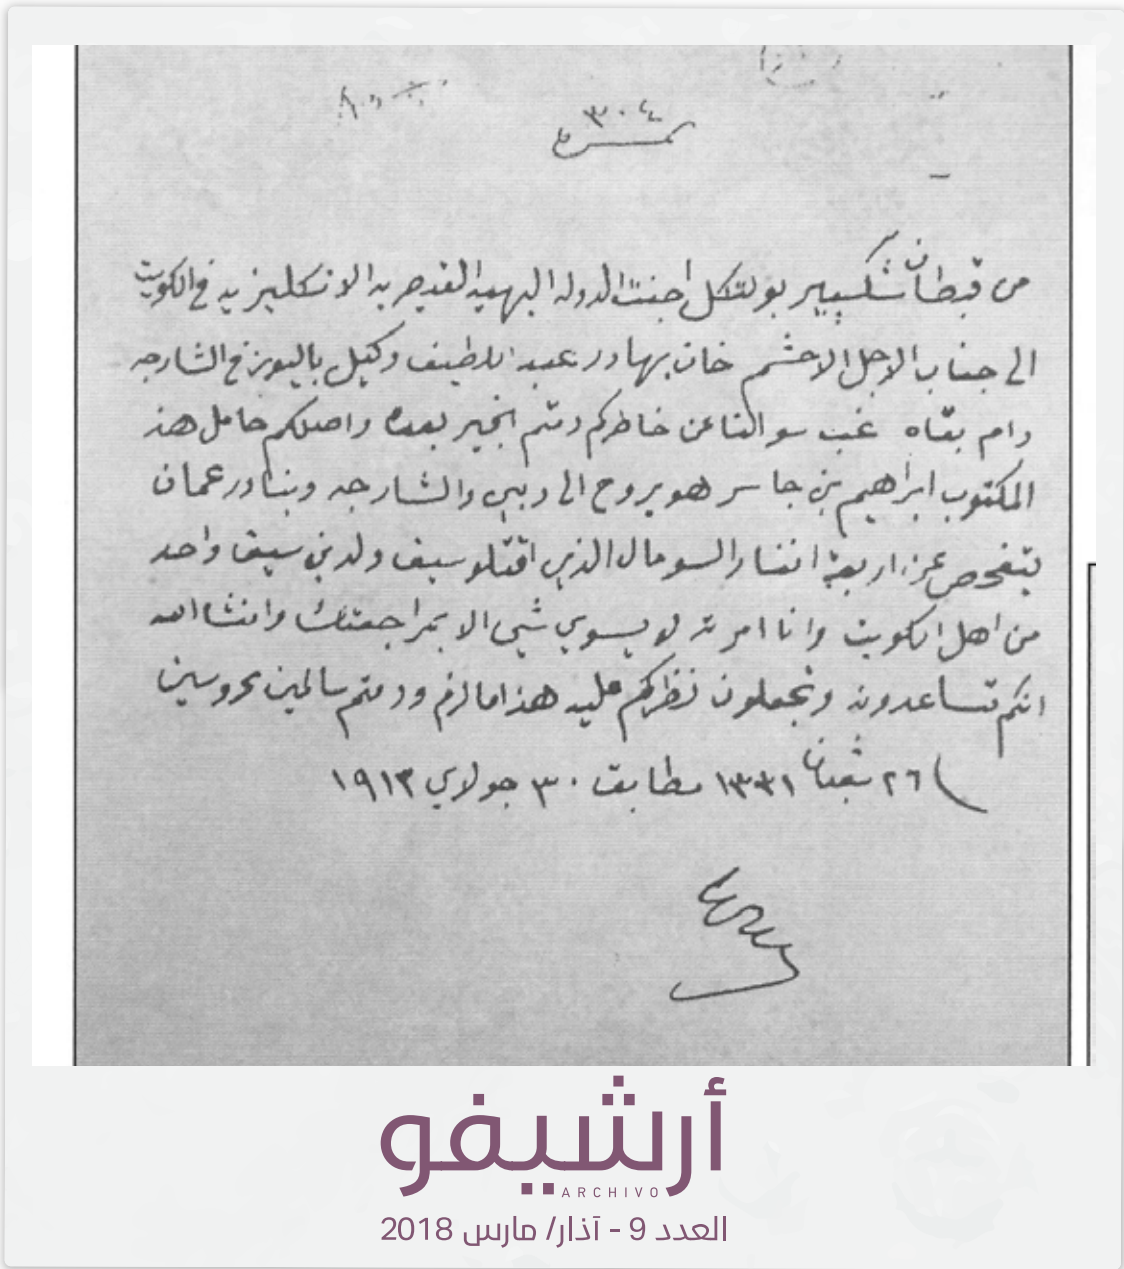 ٣٠٤
نمره
من قبطان شكسپير بولتكل اجنت الدوله البهيه القيصريه الانكليزيه في الكويت
الى جناب الاجل الاحشم خان بهادر عبد اللطيف وكيل باليوز في الشارجه
دام بقاه غب سوالنا عن خاطركم دمتم ابخير بعده واصلكم حامل هذ
المكتوب ابراهيم بن جاسر هو يروح الى دبي والشارجه وبنادر عمان
يتفحص عن اربعة انفار السومال الذي اقتلو سيف ولد بن سيف واحد
من اهل الكويت وانا امرته لا يسوي شي الا بمراجعتك وانشاالله
انكم تساعدونه وتجعلون نظركم عليه هذا ما لزم ودمتم سالمين محروسين
٢٦ شعبان ١٣٣١ مطابق ٣٠ جولاي ١٩١٣
أرشيفو
ARCHIVO
العدد 9 - آذار/ مارس 2018